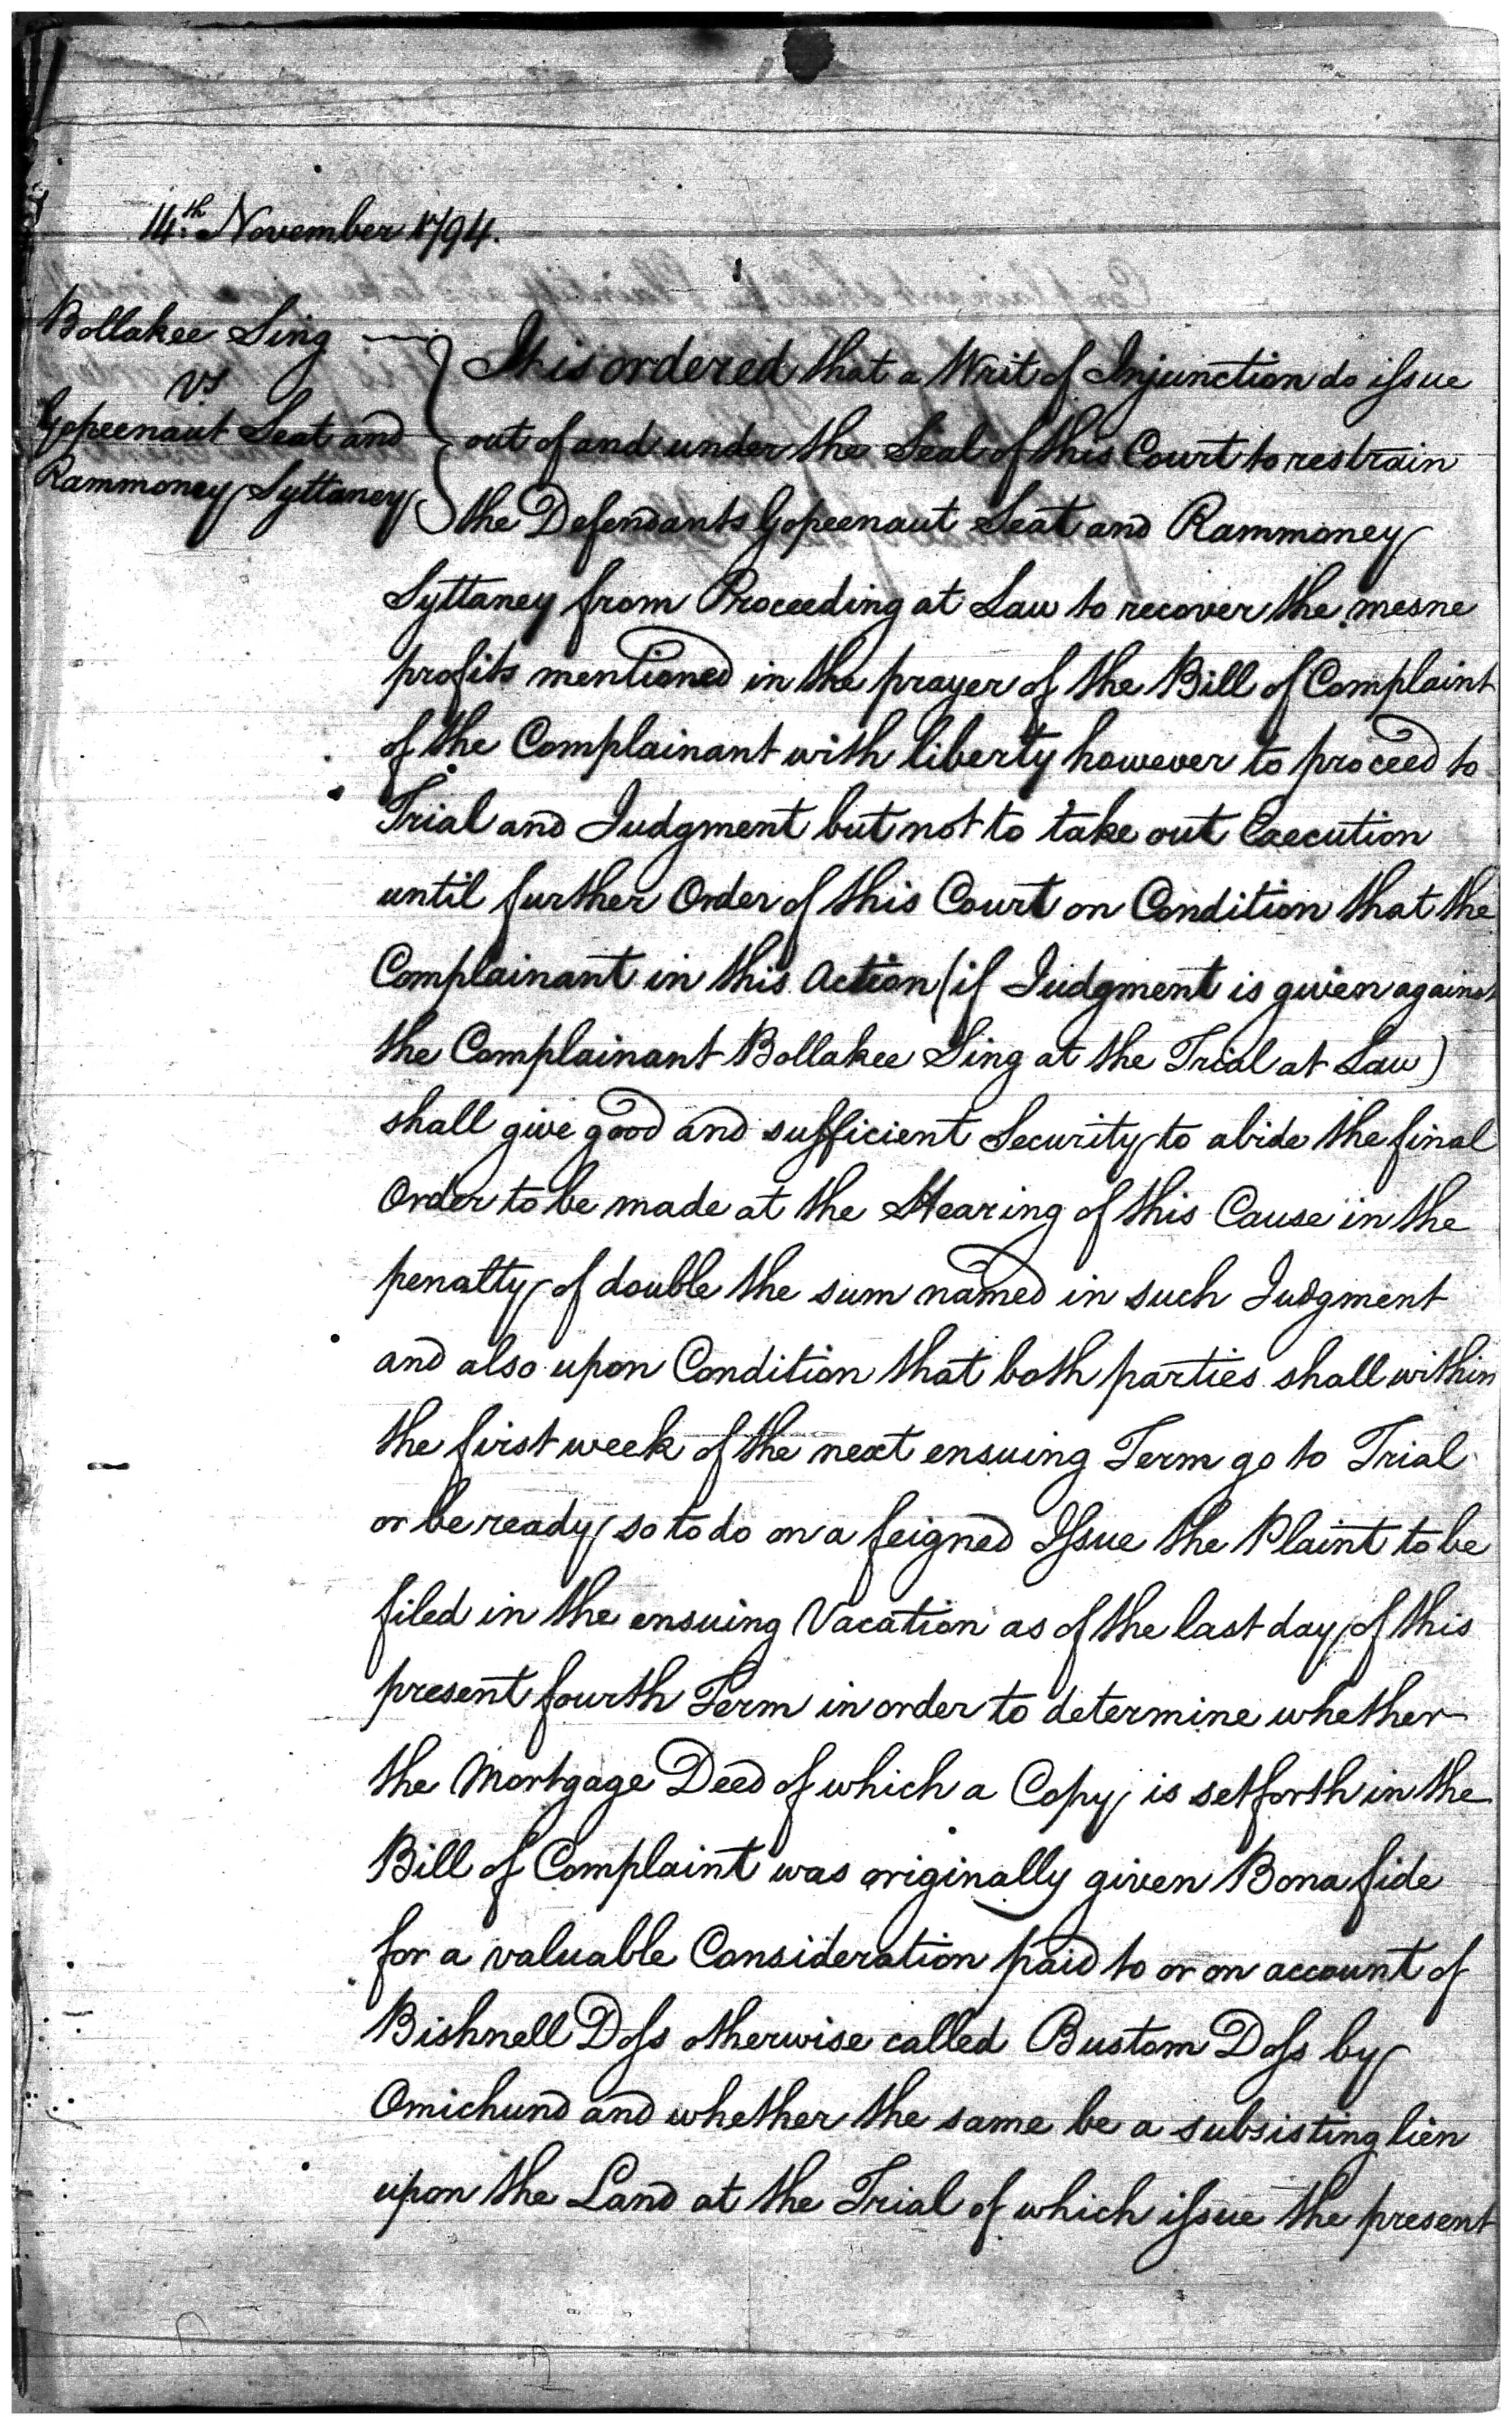 14th November 1794.
Bollakee Sing
vs
Gopeenaut Seat and
Rammoney Syttaney
It is ordered that a Writ of Injunction do issue
out of and under the Seal of this Court to restrain
the Defendants Gopeenaut Seat and Rammoney
Syttaney from Proceeding at Law to recover the mesne
profits mentioned in the prayer of the Bill of Complaint
of the Complainant with liberty however to proceed to
Trial and Judgment but not to take out Execution
until further Order of this Court on Condition that the
Complainant in this Action (if Judgment is given against
the Complainant Bollakee Sing at the Trial at Law)
shall give good and sufficient Security to abide the final
Order to be made at the Hearing of this Cause in the
penalty of double the sum named in such Judgment
and also upon Condition that both parties shall within
the first week of the next ensuing Term go to Trial
or be ready so to do on a feigned Issue the Plaint to be
filed in the ensuing Vacation as of the last day of this
present fourth Term in order to determine whether
the Mortgage Deed of which a Copy is set forth in the
Bill of Complaint was originally given Bona fide
for a valuable Consideration paid to or on account of
Bishnell Doss otherwise called Bustom Doss by
Omichund and whether the same be a subsisting lien
upon the Land at the Trial of which issue the present